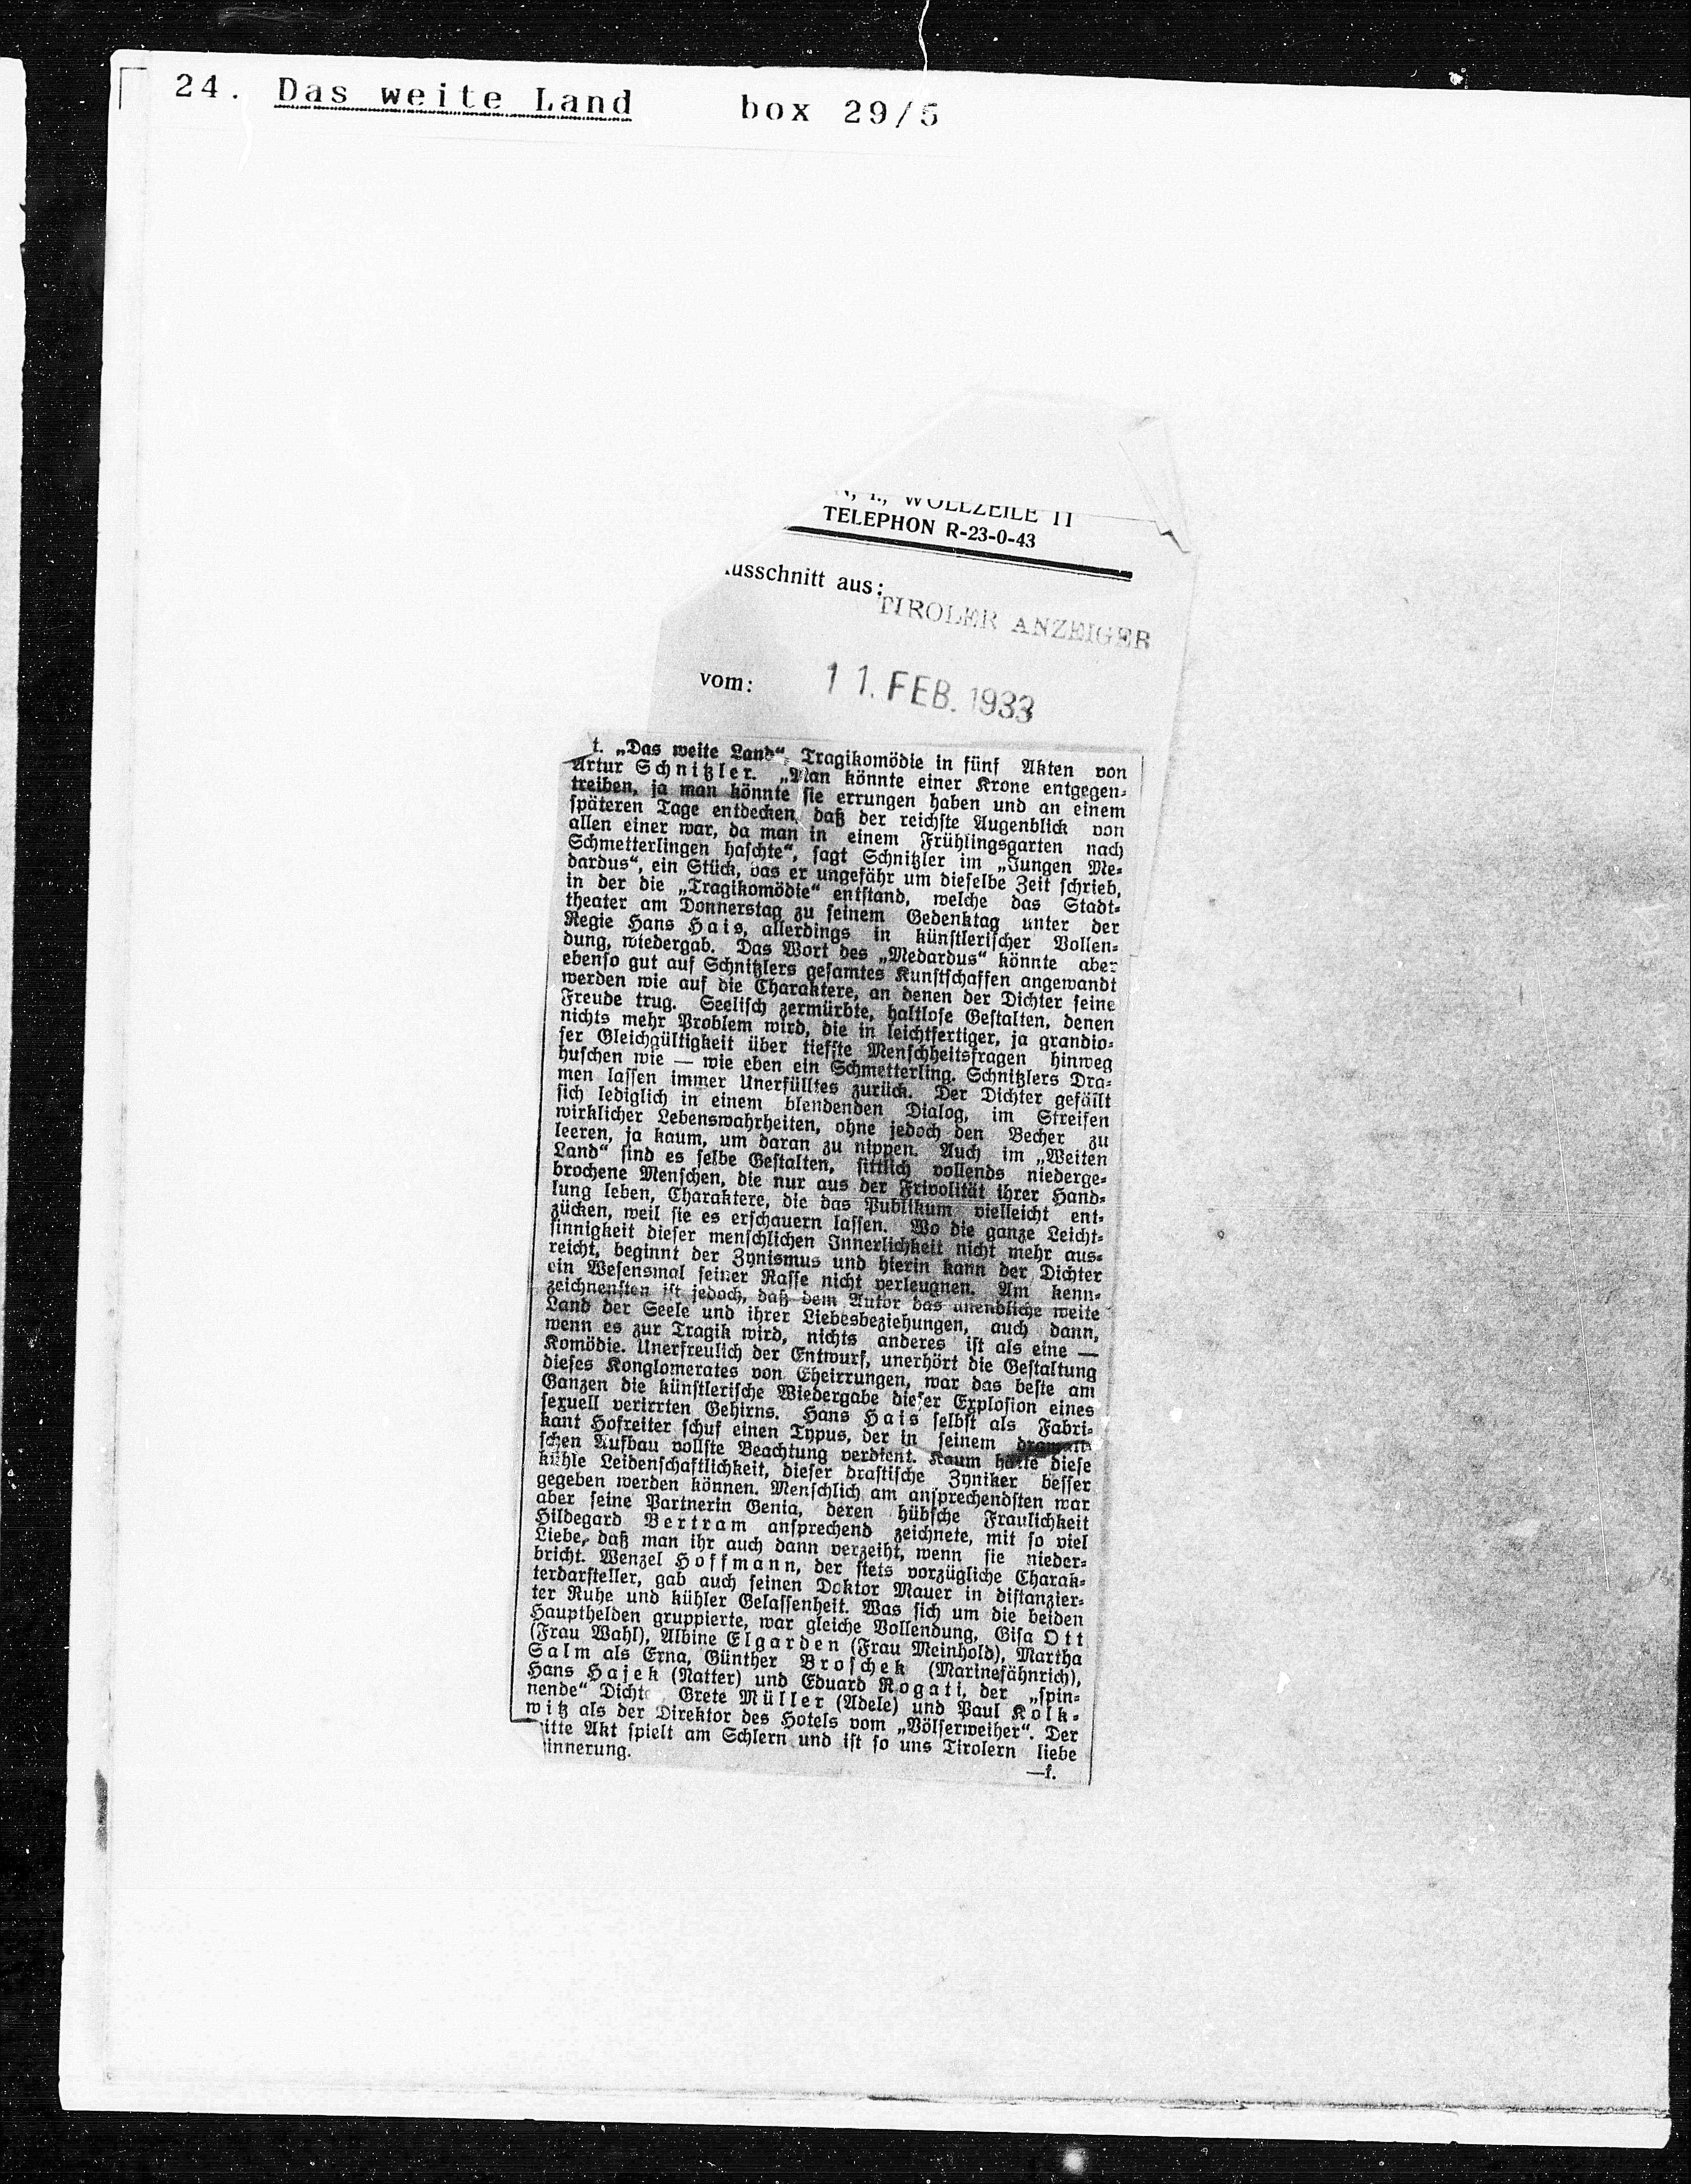 24. Das weite Land box 29/5
N, I., WOLLZEILE 11
TELEPHON R-23-0-43
usschnitt aus:
TIROLER ANZEIGER
vom: 11. FEB. 1933
t. „Das weite Land“, Tragikomödie in fünf Akten von
Artur Schnitzler. „Man könnte einer Krone entgegen-
treiben, ja man könnte sie errungen haben und an einem
späteren Tage entdecken, daß der reichste Augenblick von
allen einer war, da man in einem Frühlingsgarten nach
Schmetterlingen haschte“, sagt Schnitzler im „Jungen Me-
dardus“, ein Stück, das er ungefähr um dieselbe Zeit schrieb,
in der die „Tragikomödie“ entstand, welche das Stadt-
theater am Donnerstag zu seinem Gedenktag unter der
Regie Hans Hais, allerdings in künstlerischer Vollen-
dung, wiedergab. Das Wort des „Medardus“ könnte aber
ebenso gut auf Schnitzlers gesamtes Kunstschaffen angewandt
werden wie auf die Charaktere, an denen der Dichter seine
Freude trug. Seelisch zermürbte, haltlose Gestalten, denen
nichts mehr Problem wird, die in leichtfertiger, ja grandio-
ser Gleichgültigkeit über tiefste Menschheitsfragen hinweg
huschen wie — wie eben ein Schmetterling. Schnitzlers Dra-
men lassen immer Unerfülltes zurück. Der Dichter gefällt
sich lediglich in einem blendenden Dialog, im Streifen
wirklicher Lebenswahrheiten, ohne jedoch den Becher zu
leeren, ja kaum, um daran zu nippen. Auch im „Weiten
Land“ sind es selbe Gestalten, sittlich vollends niederge-
brochene Menschen, die nur aus der Frivolität ihrer Hand-
lung leben, Charaktere, die das Publikum vielleicht ent-
zücken, weil sie es erschauern lassen. Wo die ganze Leicht-
sinnigkeit dieser menschlichen Innerlichkeit nicht mehr aus-
reicht, beginnt der Zynismus und hierin kann der Dichter
ein Wesensmal seiner Rasse nicht verleugnen. Am kenn-
zeichnensten ist jedoch, daß dem Autor das unendliche weite
Land der Seele und ihrer Liebesbeziehungen, auch dann,
wenn es zur Tragik wird, nichts anderes ist als eine —
Komödie. Unerfreulich der Entwurf, unerhört die Gestaltung
dieses Konglomerates von Eheirrungen, war das beste am
Ganzen die künstlerische Wiedergabe dieser Explosion eines
sexuell verirrten Gehirns. Hans Hais selbst als Fabri-
kant Hofreiter schuf einen Typus, der in seinem dramati-
schen Aufbau vollste Beachtung verdient. Kaum hätte diese
kühle Leidenschaftlichkeit, dieser drastische Zyniker besser
gegeben werden können. Menschlich am ansprechendsten war
aber seine Partnerin Genia, deren hübsche Fraulichkeit
Hildegard Bertram ansprechend zeichnete, mit so viel
Liebe, daß man ihr auch dann verzeiht, wenn sie nieder-
bricht. Wenzel Hoffmann, der stets vorzügliche Charak-
terdarsteller, gab auch seinen Doktor Mauer in distanzier-
ter Ruhe und kühler Gelassenheit. Was sich um die beiden
Haupthelden gruppierte, war gleiche Vollendung, Gisa Ott
(Frau Wahl), Albine Elgarden (Frau Meinhold), Martha
Salm als Erna, Günther Broschek (Marinefähnrich),
Hans Hajek (Natter) und Eduard Rogati, der „spin-
nende“ Dicht Grete Müller (Adele) und Paul Kolk-
witz als der Direktor des Hotels vom „Völserweiher“. Der
itte Akt spielt am Schlern und ist so uns Tirolern liebe
innerung.
—f.